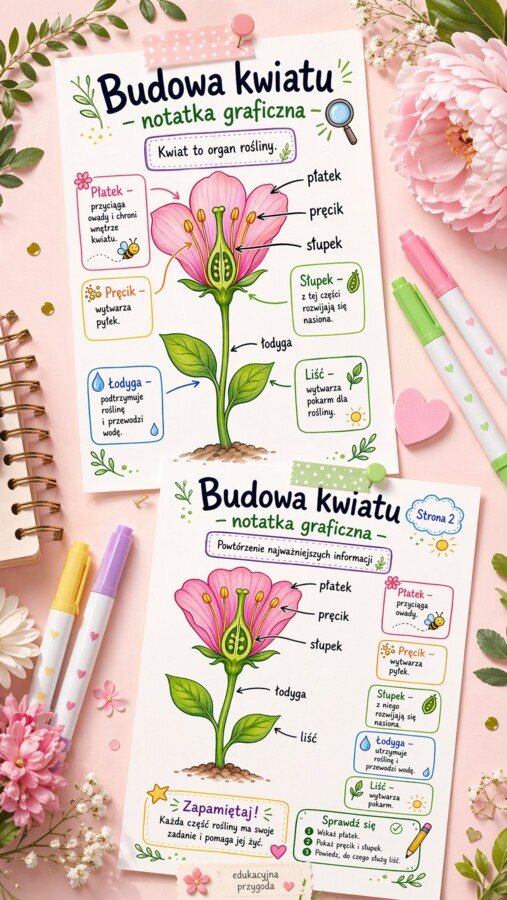 Budowa kwiatu
– notatka graficzna –
Kwiat to organ rośliny.
Płatek –
przyciąga
owady i chroni
wnętrze
kwiatu.
Pręcik –
wytwarza
pyłek.
Łodyga –
podtrzymuje
roślinę
i przewodzi
wodę.
płatek
pręcik
słupek
Słupek –
z tej części
rozwijają się
nasiona.
łodyga
Liść –
wytwarza
pokarm dla
rośliny.
Budowa kwiatu
– notatka graficzna –
Strona 2
Powtórzenie najważniejszych informacji
płatek
pręcik
słupek
łodyga
liść
Płatek –
przyciąga
owady.
Pręcik –
wytwarza
pyłek.
Słupek –
z niego
rozwijają się
nasiona.
Łodyga –
utrzymuje
roślinę i
przewodzi wodę.
Liść –
wytwarza
pokarm.
Zapamiętaj!
Każda część rośliny ma swoje
zadanie i pomaga jej żyć.
Sprawdź się
1 Wskaż płatek.
2 Pokaż pręcik i słupek.
3 Powiedz, do czego służy liść.
edukacyjna
przygoda